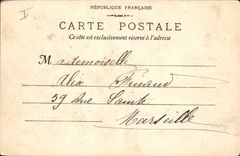 I
RÉPUBLIQUE FRANÇAISE
CARTE POSTALE
Ce côté est exclusivement réservé à l'adresse
Mademoiselle
Alix
39 Rue Sainte
Marseille